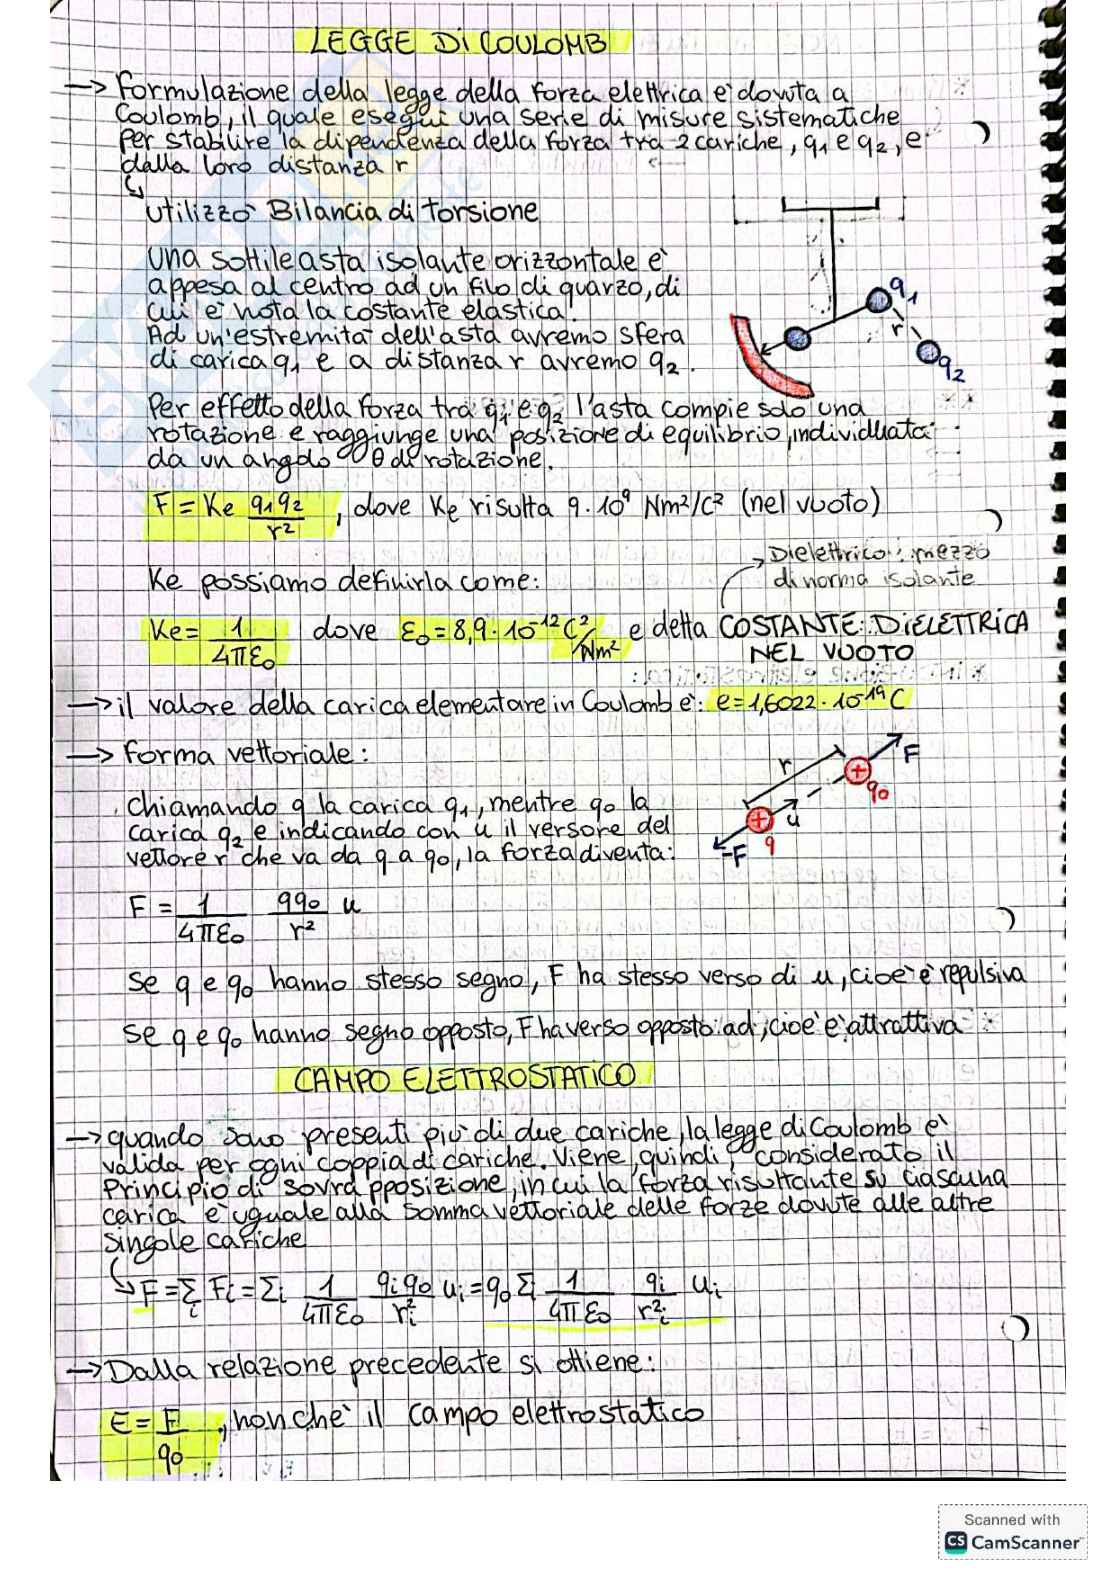 LEGGE DI COULOMB
→ Formulazione della legge della forza elettrica e' dovuta a
Coulomb, il quale eseguì una serie di misure sistematiche
per stabilire la dipendenza della forza tra 2 cariche, q1 e q2, e
dalla loro distanza r
↳ utilizzò Bilancia di torsione
una sottile asta isolante orizzontale e'
appesa al centro ad un filo di quarzo, di
cui e' nota la costante elastica.
Ad un'estremità dell'asta avremo sfera
di carica q1 e a distanza r avremo q2.
q1
r
q2
Per effetto della forza tra q1 e q2 l'asta compie solo una
rotazione e raggiunge una posizione di equilibrio, individuata
da un angolo θ di rotazione.
F = Ke q1q2/r², dove Ke risulta 9·10⁹ Nm²/C² (nel vuoto)
→ Dielettrico: mezzo
di norma isolante
Ke possiamo definirla come:
Ke = 1/4πε0 dove ε0 = 8,9·10⁻¹² C²/Nm² e detta COSTANTE DIELETTRICA
NEL VUOTO
→ il valore della carica elementare in Coulomb e': e = 1,6022·10⁻¹⁹ C
→ forma vettoriale:
r
F
q0
u
-F
q
Chiamando q la carica q1, mentre q0 la
carica q2 e indicando con u il versore del
vettore r che va da q a q0, la forza diventa:
F = 1/4πε0 qq0/r² u
se q e q0 hanno stesso segno, F ha stesso verso di u, cioe' e' repulsiva
se q e q0 hanno segno opposto, F ha verso opposto ad, cioe' e' attrattiva
CAMPO ELETTROSTATICO
→ quando sono presenti piu' di due cariche, la legge di Coulomb e'
valida per ogni coppia di cariche. Viene, quindi, considerato il
Principio di sovrapposizione, in cui la forza risultante su ciascuna
carica e' uguale alla somma vettoriale delle forze dovute alle altre
singole cariche
↳ F = Σi Fi = Σi 1/4πε0 qiq0/ri² ui = q0 Σ 1/4πε0 qi/ri² ui
→ Dalla relazione precedente si ottiene:
E = F/q0, nonche' il campo elettrostatico
Scanned with
CS CamScanner